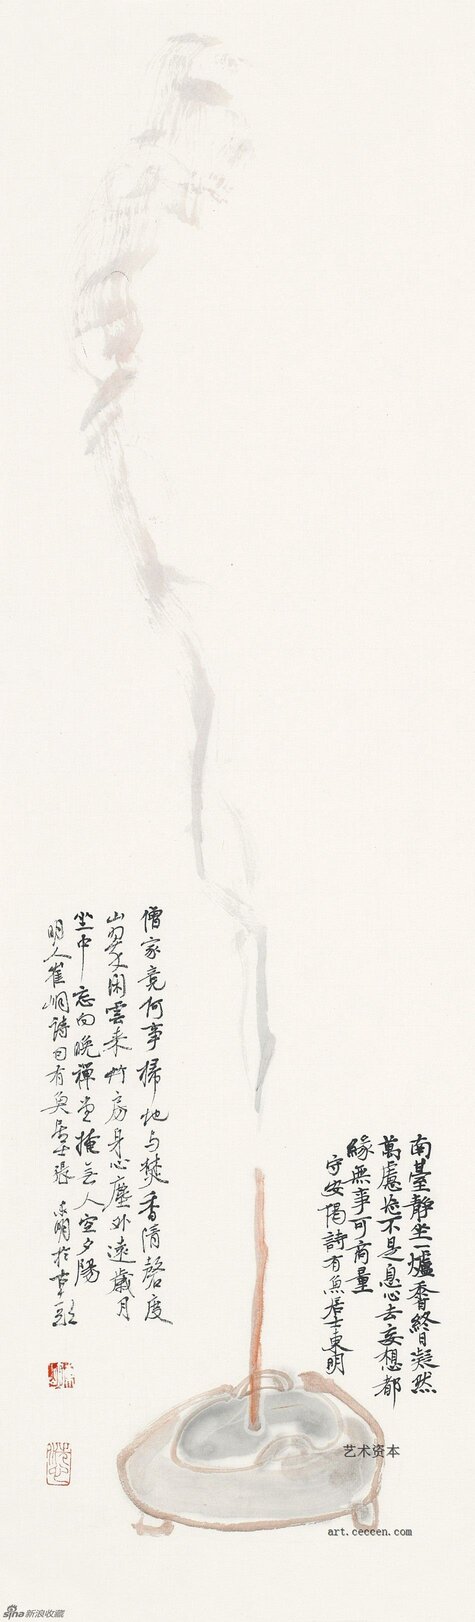 南臺靜坐一爐香終日凝然
萬慮忘不是息心去妄想都
緣無事可商量
守安偈詩有魚居士東明
僧家竟何事掃地与焚香清磬度
山翠閑雲來竹房身心塵外遠歲月
坐中忘向晚禪堂掩无人空夕陽
明人崔峒詩句有魚居士張東明於
艺术资本
art.ceccen.com
sina新浪收藏